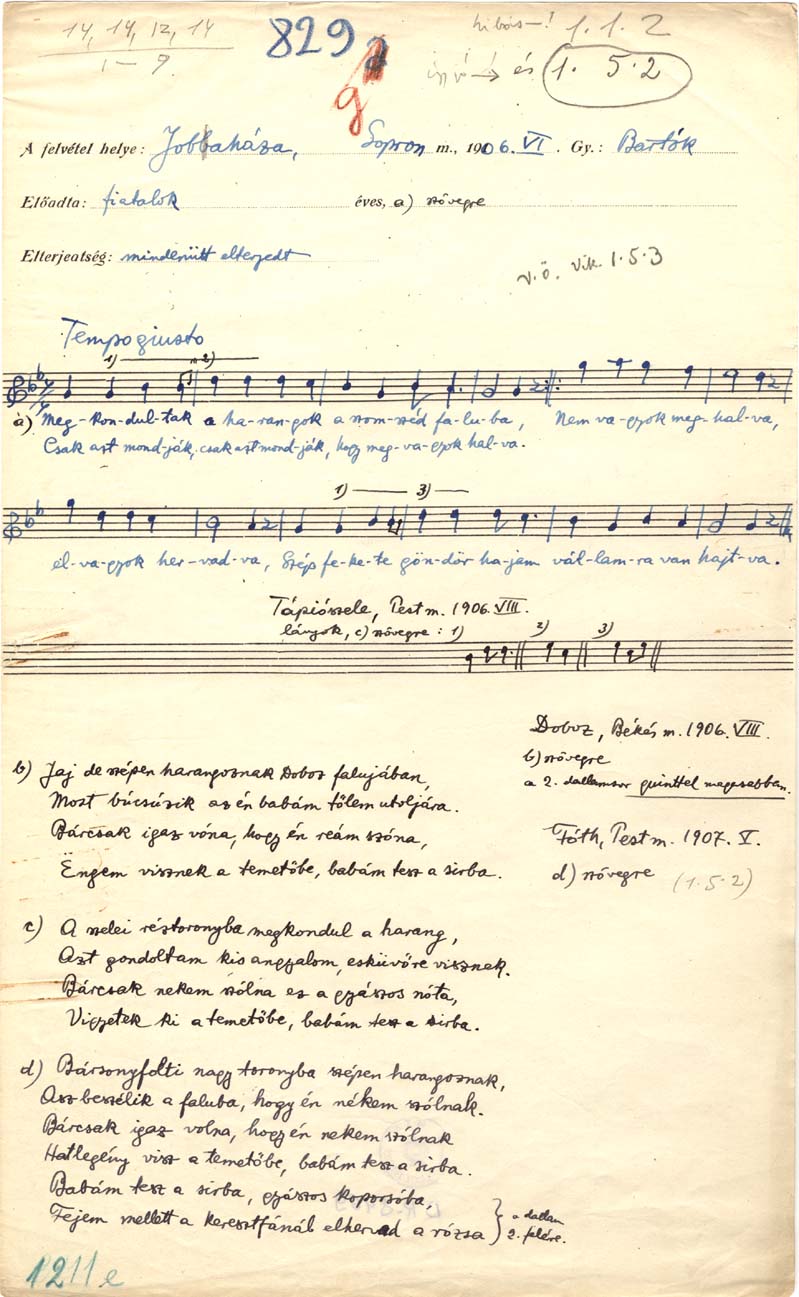 14, 14, 12, 14
1–9
829
g
hibás–! 1.1.2
és 1. 5. 2
A felvétel helye: Jobbaháza, Sopron m., 1906. VI. Gy.: Bartók
Előadta: fiatalok éves, a) szövegre
Elterjeatség: mindenütt elterjedt
v.ö. Vik. 1.5.3
Tempo giusto
1) 2)
a) Meg-kon-dul-tak a ha-ran-gok a szom-széd fa-lu-ba, Nem va-gyok meg-hal-va,
Csak azt mond-ják, csak azt mond-ják, hogy meg-va-gyok hal-va.
1) 3)
el-va-gyok her-vad-va, Szép fe-ke-te gön-dör ha-jam vál-lam-ra van hajt-va.
Tápiószele, Pest m. 1906. VIII.
lányok, c) szövegre: 1) 2) 3)
Doboz, Békés m. 1906. VIII.
b) szövegre
a 2. dallamsor quinttel magasabban.
Fóth, Pest m. 1907. V.
d) szövegre (1.5.2)
b) Jaj de szépen harangoznak Doboz falujában,
Most búcsúzik az én babám tőlem utoljára.
Bárcsak igaz vóna, hogy én reám szóna,
Engem visznek a temetőbe, babám tesz a sirba.
c) A szelei réztoronyba megkondul a harang,
Azt gondoltam kis angyalom, esküvőre visznek.
Bárcsak nekem szólna ez a gyászos nóta,
Vigyetek ki a temetőbe, babám tesz a sirba.
d) Bársonyfolti nagy toronyba szépen harangoznak,
Azt beszélik a faluba, hogy én nékem szólnak.
Bárcsak igaz volna, hogy én nekem szólnak
Hatlegény visz a temetőbe, babám tesz a sirba.
Babám tesz a sirba, gyászos koporsóba,
Fejem mellett a keresztfánál elhervad a rózsa } a dallam
2. felére.
1211e